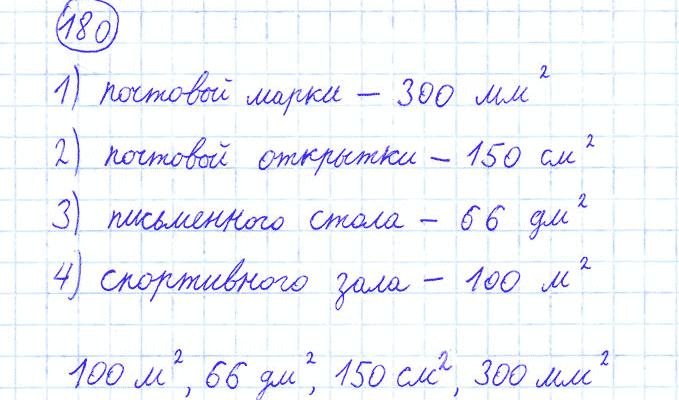 180
1) почтовой марки – 300 мм²
2) почтовой открытки – 150 см²
3) письменного стола – 66 дм²
4) спортивного зала – 100 м²
100 м², 66 дм², 150 см², 300 мм²